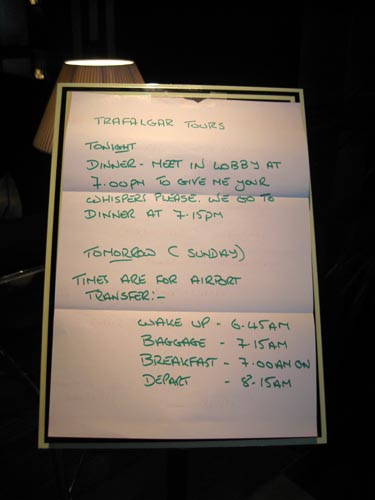 TRAFALGAR TOURS
TONIGHT
DINNER - MEET IN LOBBY AT
7.00PM TO GIVE ME YOUR
WHISPERS PLEASE. WE GO TO
DINNER AT 7.15PM
TOMORROW (SUNDAY)
TIMES ARE FOR AIRPORT
TRANSFER:-
WAKE UP - 6.45AM
BAGGAGE - 7.15AM
BREAKFAST - 7.00AM ON
DEPART - 8.15AM